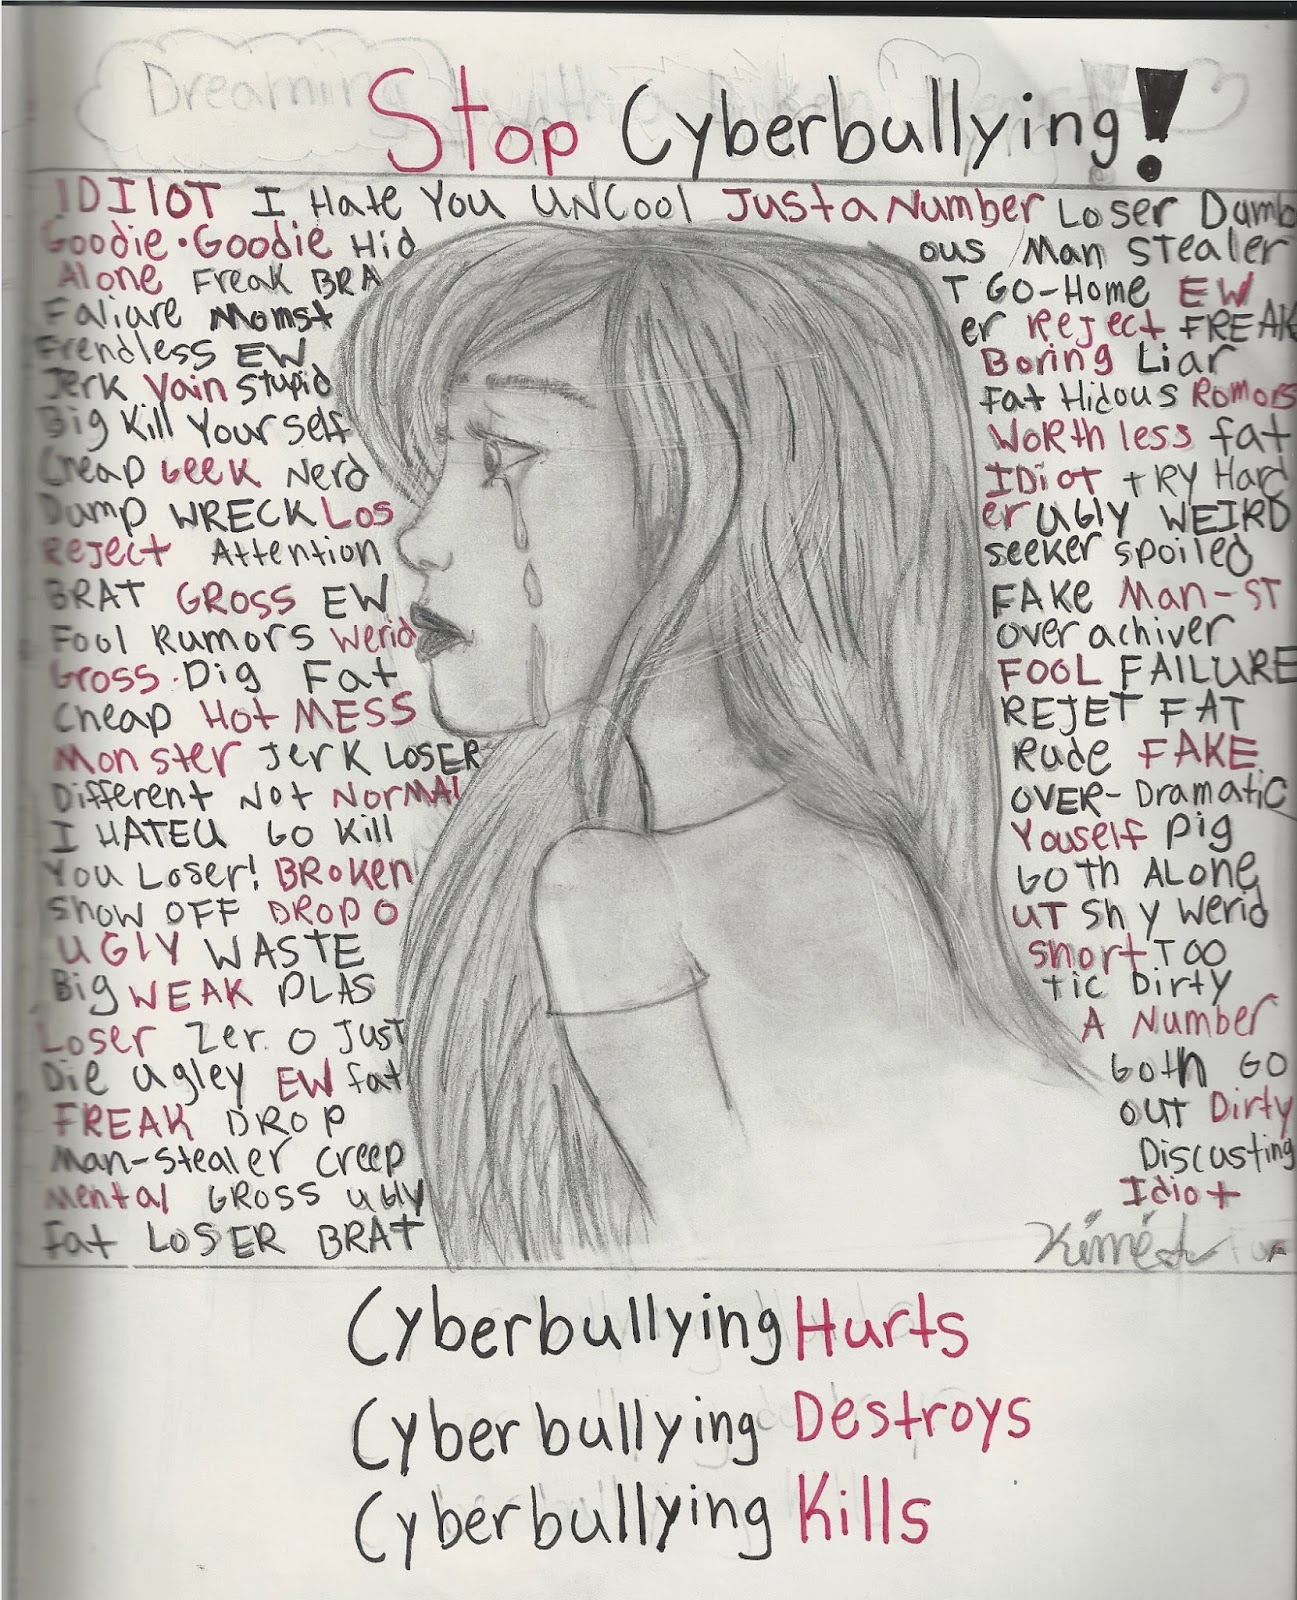 Stop Cyberbullying!
IDIIOT I Hate You UNCOOL Just a Number Loser Dumb
Goodie•Goodie Hid ous Man Stealer
Alone Freak BRA T GO-Home EW
Faliure Momst er Reject FREAK
Frendless EW Boring Liar
Jerk Vain Stupid Fat Hidous Romors
Big Kill Your self Worthless fat
Cheap Geek Nerd IDiot tRY Hard
Dump WRECK Los er UGLY WEIRD
Reject Attention seeker spoiled
BRAT GROSS EW FAKE Man-ST
Fool Rumors Werid over achiver
Gross•Dig Fat FOOL FAILURE
Cheap Hot MESS REJET FAT
Monster Jerk LOSER Rude FAKE
Different Not NorMAl OVER-Dramatic
I HATEU GO Kill Youself pig
You Loser! BRoKen GOTh ALone
Show OFF DROP O UT Shy Werid
UGLY WASTE Short TOO
Big WEAK PLAS tic Dirty
Loser Zer o Just A Number
Die ugley EW fat Goth GO
FREAK DROP OUT Dirty
Man-stealer creep Discusting
Mental GROSS ugly Idiot
Fat LOSER BRAT
Cyberbullying Hurts
Cyberbullying Destroys
Cyberbullying Kills